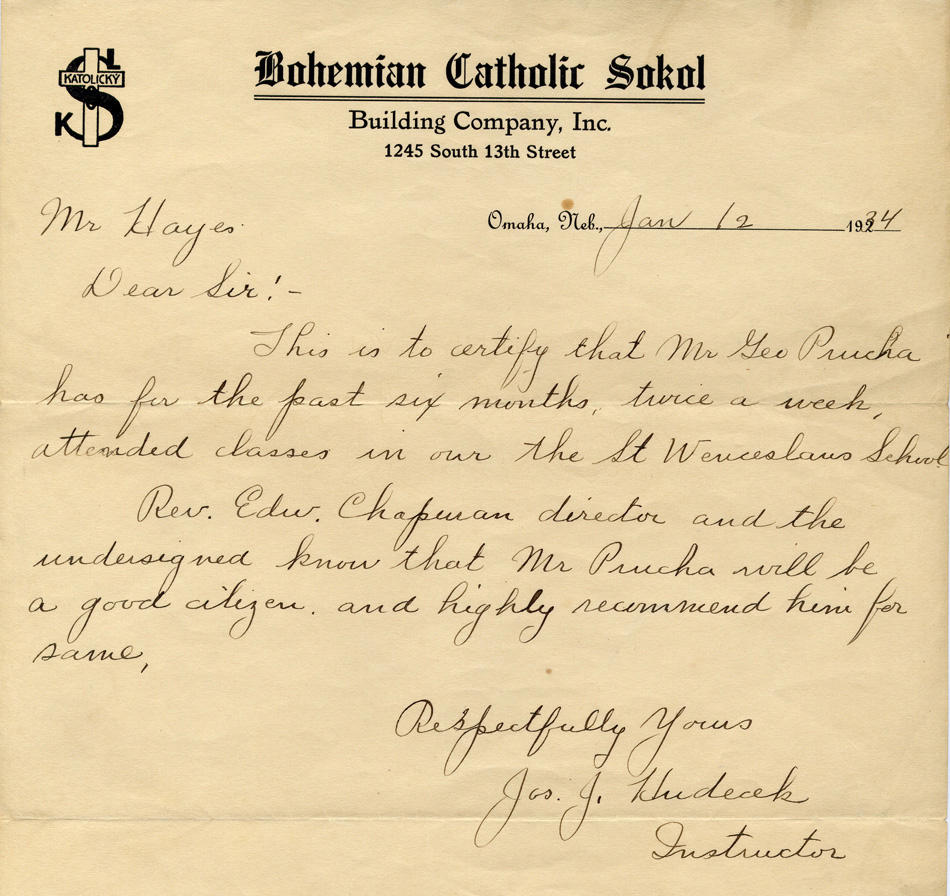 L
KATOLICKÝ
S
K
Bohemian Catholic Sokol
Building Company, Inc.
1245 South 13th Street
Omaha, Neb., Jan 12 1934
Mr Hayes.
Dear Sir! -
This is to certify that Mr Geo Prucha
has for the past six months, twice a week,
attended classes in our the St Wenceslaus School
Rev. Edw. Chapuran director and the
undersigned know that Mr Prucha will be
a good citizen. and highly recommend him for
same,
Respectfully Yours
Jos. J. Hudecek
Instructor